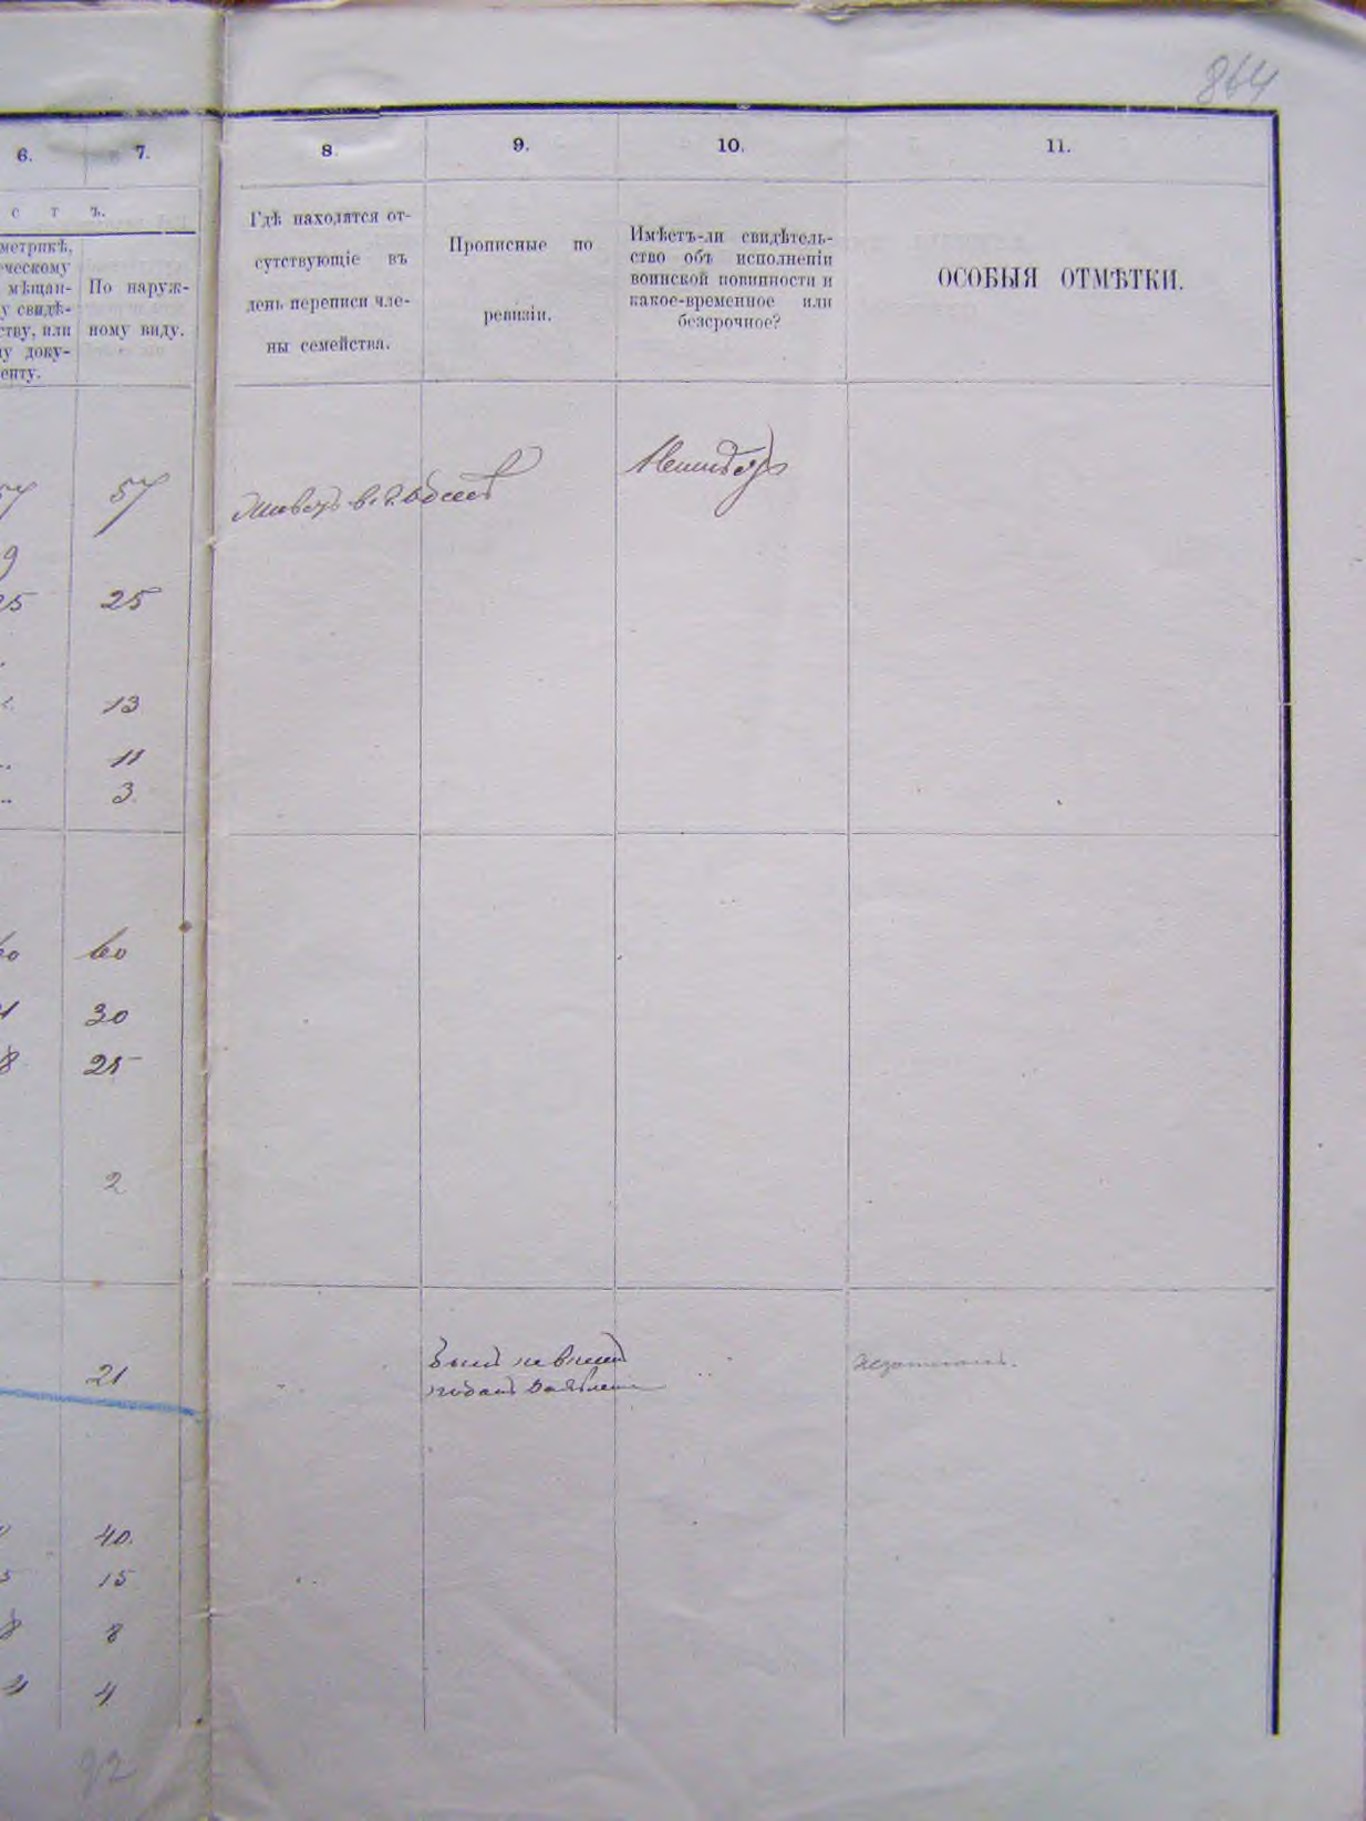 864
6. 7. 8. 9. 10. 11.
с т ъ.
метрикѣ,
ческому
мѣщан-
у свидѣ-
ству, или
у доку-
енту.
По наруж-
ному виду.
Гдѣ находятся от-
сутствующіе въ
день переписи чле-
ны семейства.
Прописные по
ревизіи.
Имѣетъ-ли свидѣтель-
ство объ исполненіи
воинской повинности и
какое-временное или
безсрочное?
ОСОБЫЯ ОТМѢТКИ.
57
9
25 25
13
11
3
60 60
30
8 25
2
21
40
15
8 8
4 4
92